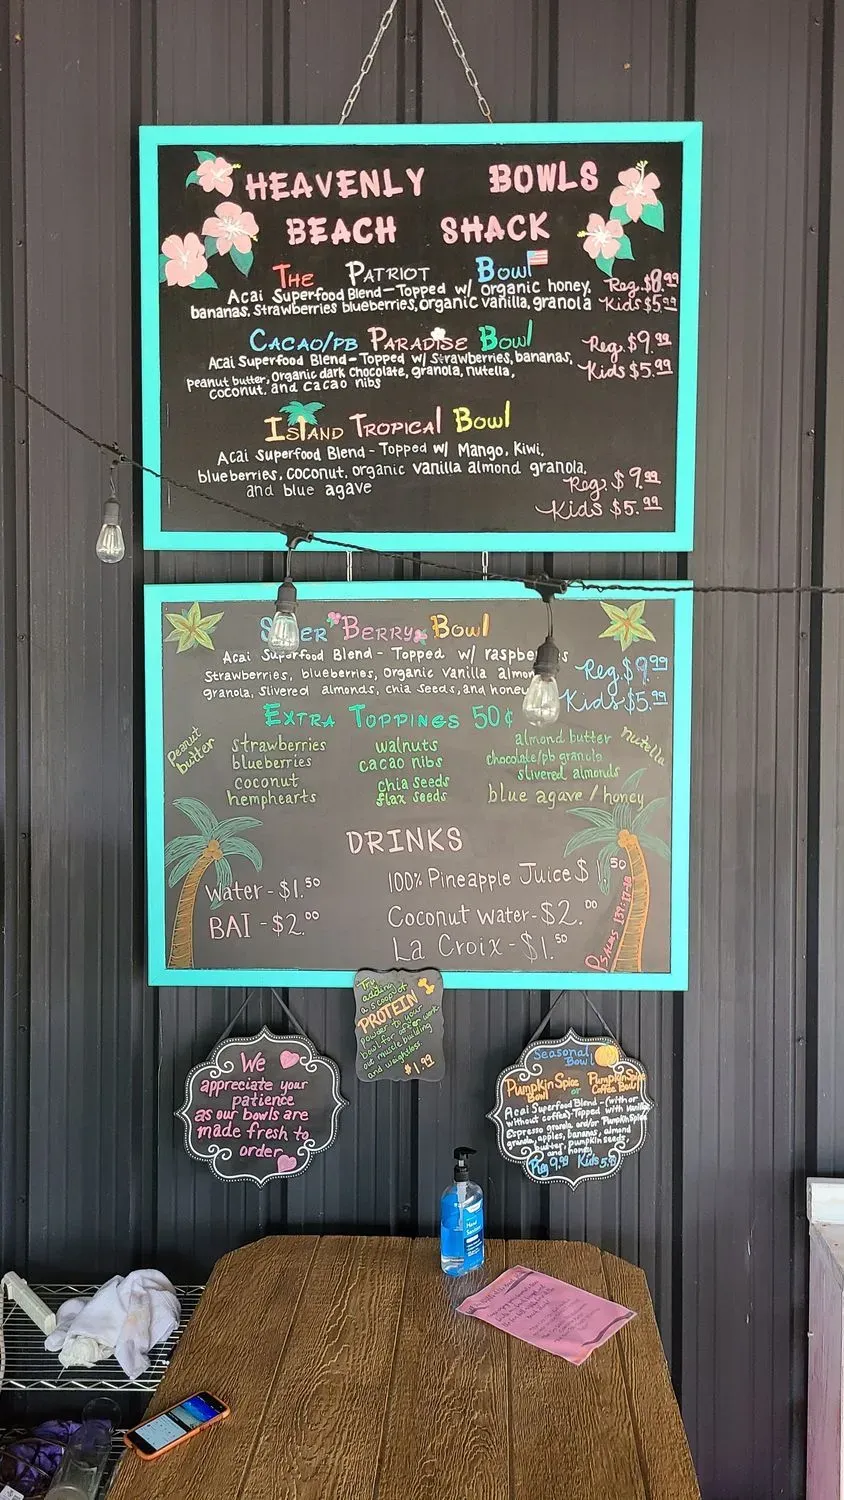 HEAVENLY BOWLS
BEACH SHACK
THE PATRIOT BOWL
Acai Superfood Blend - Topped w/ organic honey,
bananas, strawberries blueberries, organic vanilla, granola
Reg. $8.99
Kids $5.99
CACAO/PB PARADISE BOWL
Acai Superfood Blend - Topped w/ strawberries, bananas,
peanut butter, organic dark chocolate, granola, nutella,
coconut, and cacao nibs
Reg. $9.99
Kids $5.99
ISLAND TROPICAL BOWL
Acai Superfood Blend - Topped w/ Mango, Kiwi,
blueberries, coconut, organic vanilla almond granola,
and blue agave
Reg. $9.99
Kids $5.99
BERRY BOWL
Acai Superfood Blend - Topped w/
Strawberries, blueberries, organic vanilla
granola, slivered almonds, chia seeds, and honey
Reg. $9.99
Kids $5.99
EXTRA TOPPINGS 50¢
Peanut
butter
strawberries
blueberries
coconut
hemphearts
walnuts
cacao nibs
chia seeds
flax seeds
almond butter
chocolate/pb granola
slivered almonds
blue agave / honey
nutella
DRINKS
Water - $1.50
BAI - $2.00
100% Pineapple Juice $1.50
Coconut Water - $2.00
La Croix - $1.50
PSALMS 139:17-18
Try
adding
a scoop of
PROTEIN
powder to your
bowl for after work
out muscle building
and weightloss
$1.99
We
appreciate your
patience
as our bowls are
made fresh to
order
Seasonal
Bowl
Pumpkin Spice Bowl
or
Pumpkin Spice Coffee Bowl
Acai Superfood Blend - (with or
without coffee) - Topped with vanilla
Espresso granola and/or Pumpkin Spice
granola, apples, bananas, almond
butter, pumpkin seeds,
and honey
Reg 9.99 Kids 5.99
Hand
Sanitizer